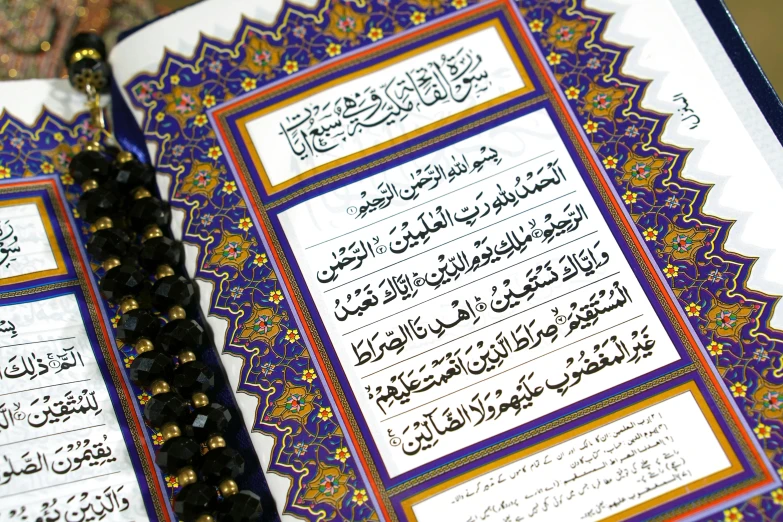 سُوْرَةُ الْفَاتِحَةِ مَكِّيَّةٌ وَّهِيَ سَبْعُ اٰيَاتٍ
بِسْمِ اللّٰهِ الرَّحْمٰنِ الرَّحِيْمِ ۝١
اَلْحَمْدُ لِلّٰهِ رَبِّ الْعٰلَمِيْنَ ۝٢ الرَّحْمٰنِ
الرَّحِيْمِ ۝٣ مٰلِكِ يَوْمِ الدِّيْنِ ۝٤ اِيَّاكَ نَعْبُدُ
وَاِيَّاكَ نَسْتَعِيْنُ ۝٥ اِهْدِنَا الصِّرَاطَ
الْمُسْتَقِيْمَ ۝٦ صِرَاطَ الَّذِيْنَ اَنْعَمْتَ عَلَيْهِمْ
غَيْرِ الْمَغْضُوْبِ عَلَيْهِمْ وَلَا الضَّآلِّيْنَ ۝٧
الٓمّٓ ۝١ ذٰلِكَ
لِّلْمُتَّقِيْنَ ۝٢
يُقِيْمُوْنَ الصَّلٰو
وَالَّذِيْنَ يُؤْمِنُوْ